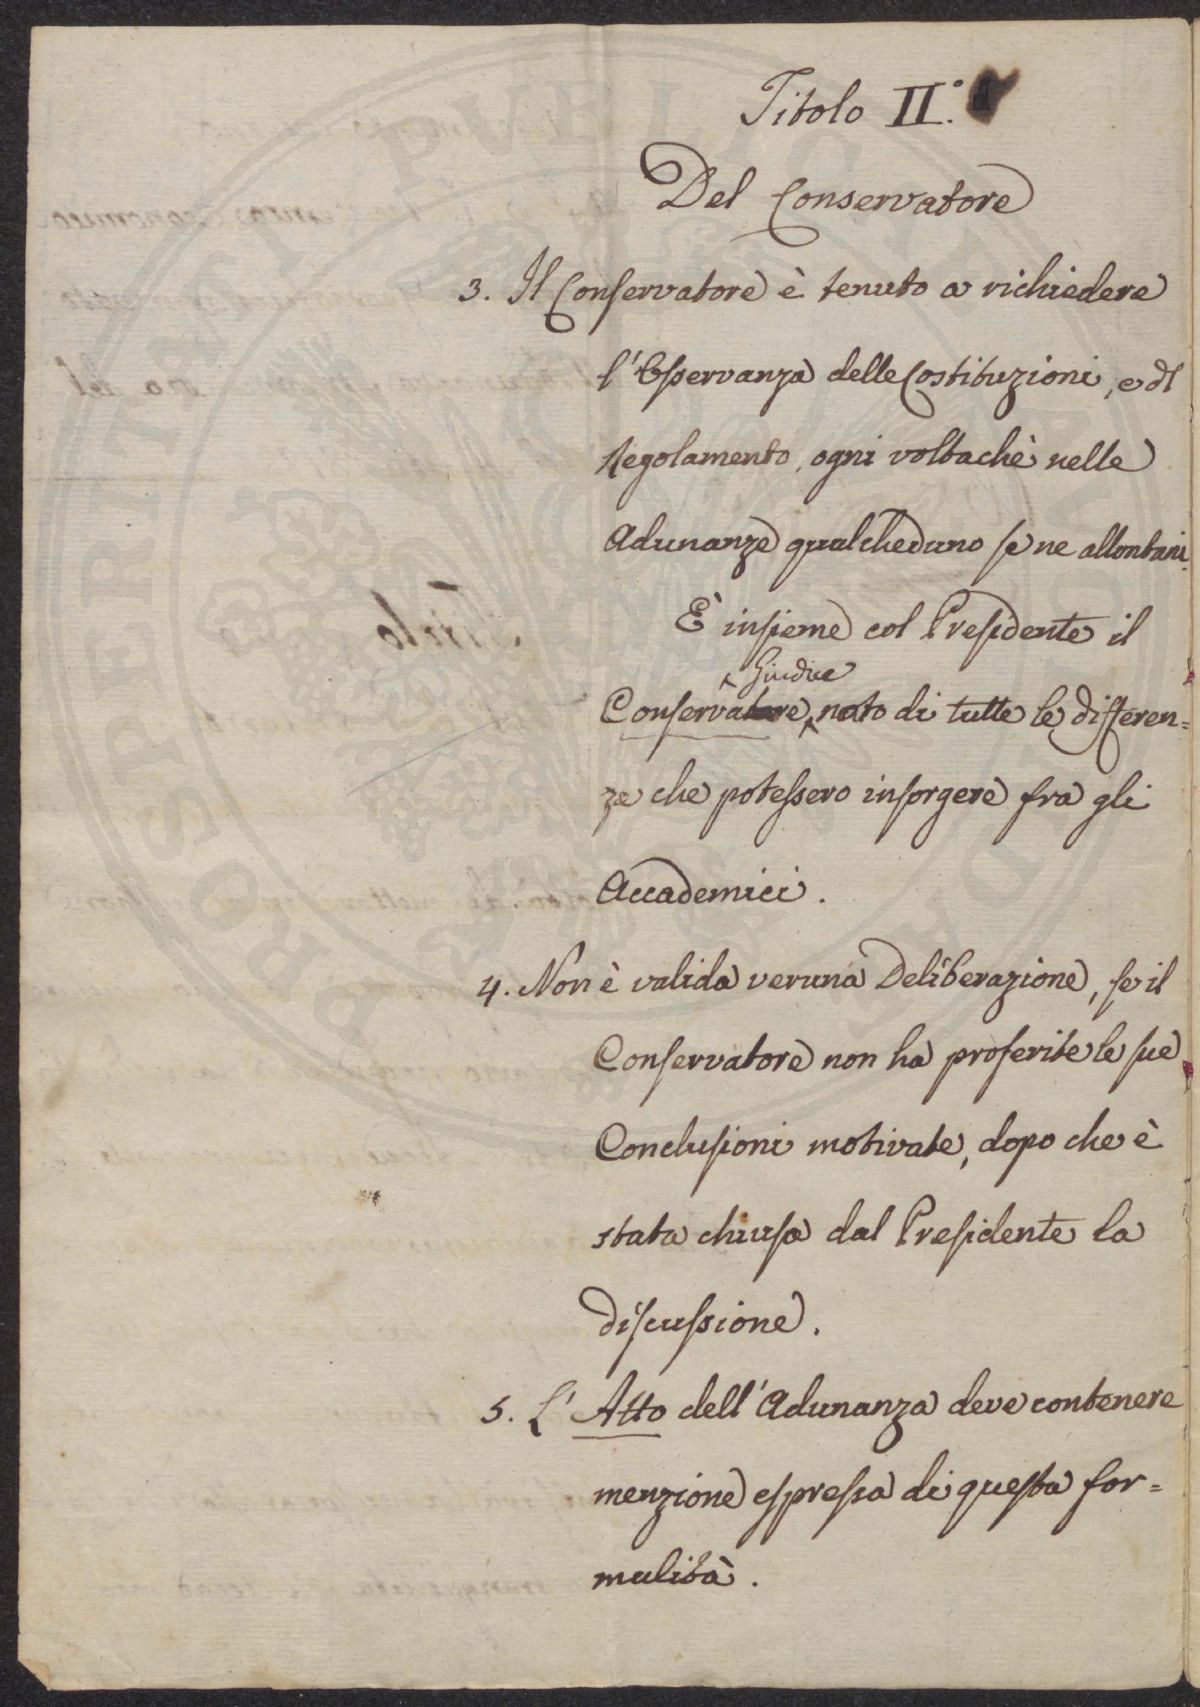 Titolo II.°
Del Conservatore
3. Il Conservatore è tenuto a richiedere
l'Osservanza delle Costituzioni, e dl
Regolamento, ogni voltachè nelle
Adunanze qualcheduno se ne allontani.
È insieme col Presidente il
Giudice
Conservatore nato di tutte le differen=
ze che potessero insorgere fra gli
Accademici.
4. Non è valida veruna Deliberazione, se il
Conservatore non ha proferite le sue
Conclusioni motivate, dopo che è
stata chiusa dal Presidente la
discussione.
5. L'Atto dell'Adunanza deve contenere
menzione espressa di questa for=
malità.